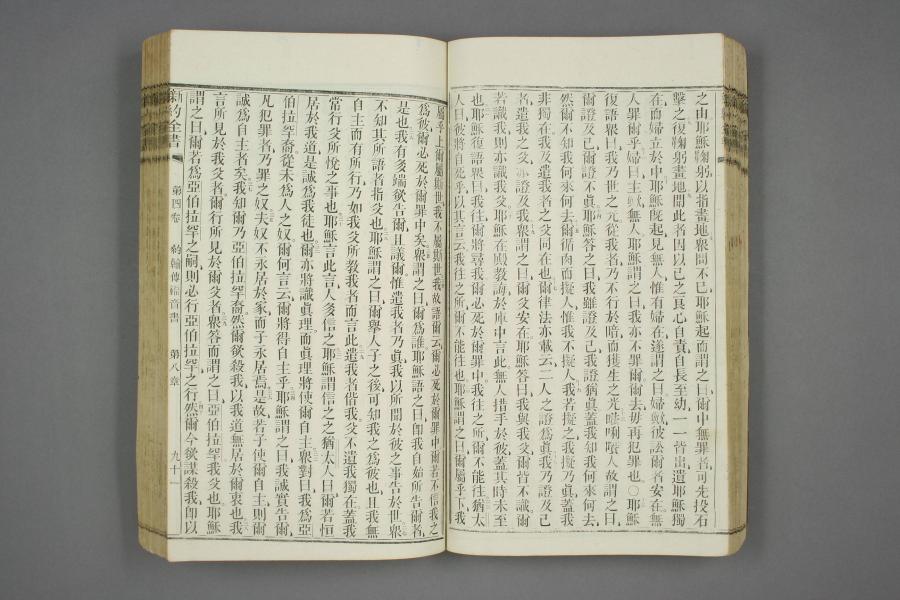 之由耶穌鞠躬以指畫地衆問不已耶穌起而謂之曰爾中無罪者可先投石
擊之復鞠躬畫地聞此者因以己之良心自責自長至幼一一皆出遺耶穌獨
在而婦立於中耶穌旣起見無人惟有婦在遂謂之曰婦歟彼訟爾者安在無
人罪爾乎婦曰主歟無人耶穌謂之曰我亦不罪爾爾去毋再犯罪也〇耶穌
復語衆曰我乃世之元從我者乃不行於暗而獲生之光𠵽唎㘔人故謂之曰
爾證及己爾證不眞耶穌答之曰我雖證及己我證猶眞蓋我知我何來何去
然爾不知我何來何去爾循肉而擬人惟我不擬人我若擬之我擬乃眞蓋我
非獨在我及遣我者之父同在也爾律法亦載云二人之證爲眞我乃證及己
者遣我之父亦證及我衆謂之曰爾父安在耶穌答曰我與我父爾皆不識爾
若識我則亦識我父耶穌在殿教誨於庫中言此無人措手於彼蓋其時未至
也耶穌復語衆曰我往爾將尋我爾必死於爾罪中我往之所爾不能往猶太
人曰彼將自兇乎以其言云我往之所爾不能往也耶穌謂之曰爾屬乎下我
屬乎上爾屬斯世我不屬斯世我故語爾云爾必死於爾罪中爾若不信我之
爲彼爾必死於爾罪中矣衆謂之曰爾爲誰耶穌語之曰卽我自始所告爾者
是也我有多端欲告爾且議爾惟遣我者乃眞我以所聞於彼之事告於世衆
不知其所語者指父也耶穌謂之曰爾舉人子之後可知我之爲彼也且我無
自主而有所行乃如我父所敎我者而言此遣我者偕我父不遺我獨在蓋我
常行父所悅之事也耶穌言此言人多信之耶穌謂信之之猶太人曰爾若恒
居於我道是誠爲我徒也爾亦將識眞理而眞理將使爾自主衆對曰我爲亞
伯拉罕裔從未爲人之奴爾何言云爾將得自主乎耶穌謂之曰我誠實告爾
凡犯罪者乃罪之奴夫奴不永居於家而子永居焉是故若子使爾自主則爾
誠爲自主者矣我知爾乃亞伯拉罕裔然爾欲殺我以我道無居於爾衷也我
言所見於我父者爾行所見於爾父者衆答而謂之曰亞伯拉罕我父也耶穌
謂之曰爾若爲亞伯拉罕之嗣則必行亞伯拉罕之行然爾今欲謀殺我卽以
新約全書
第四卷 約翰傳福音書 第八章 九十一